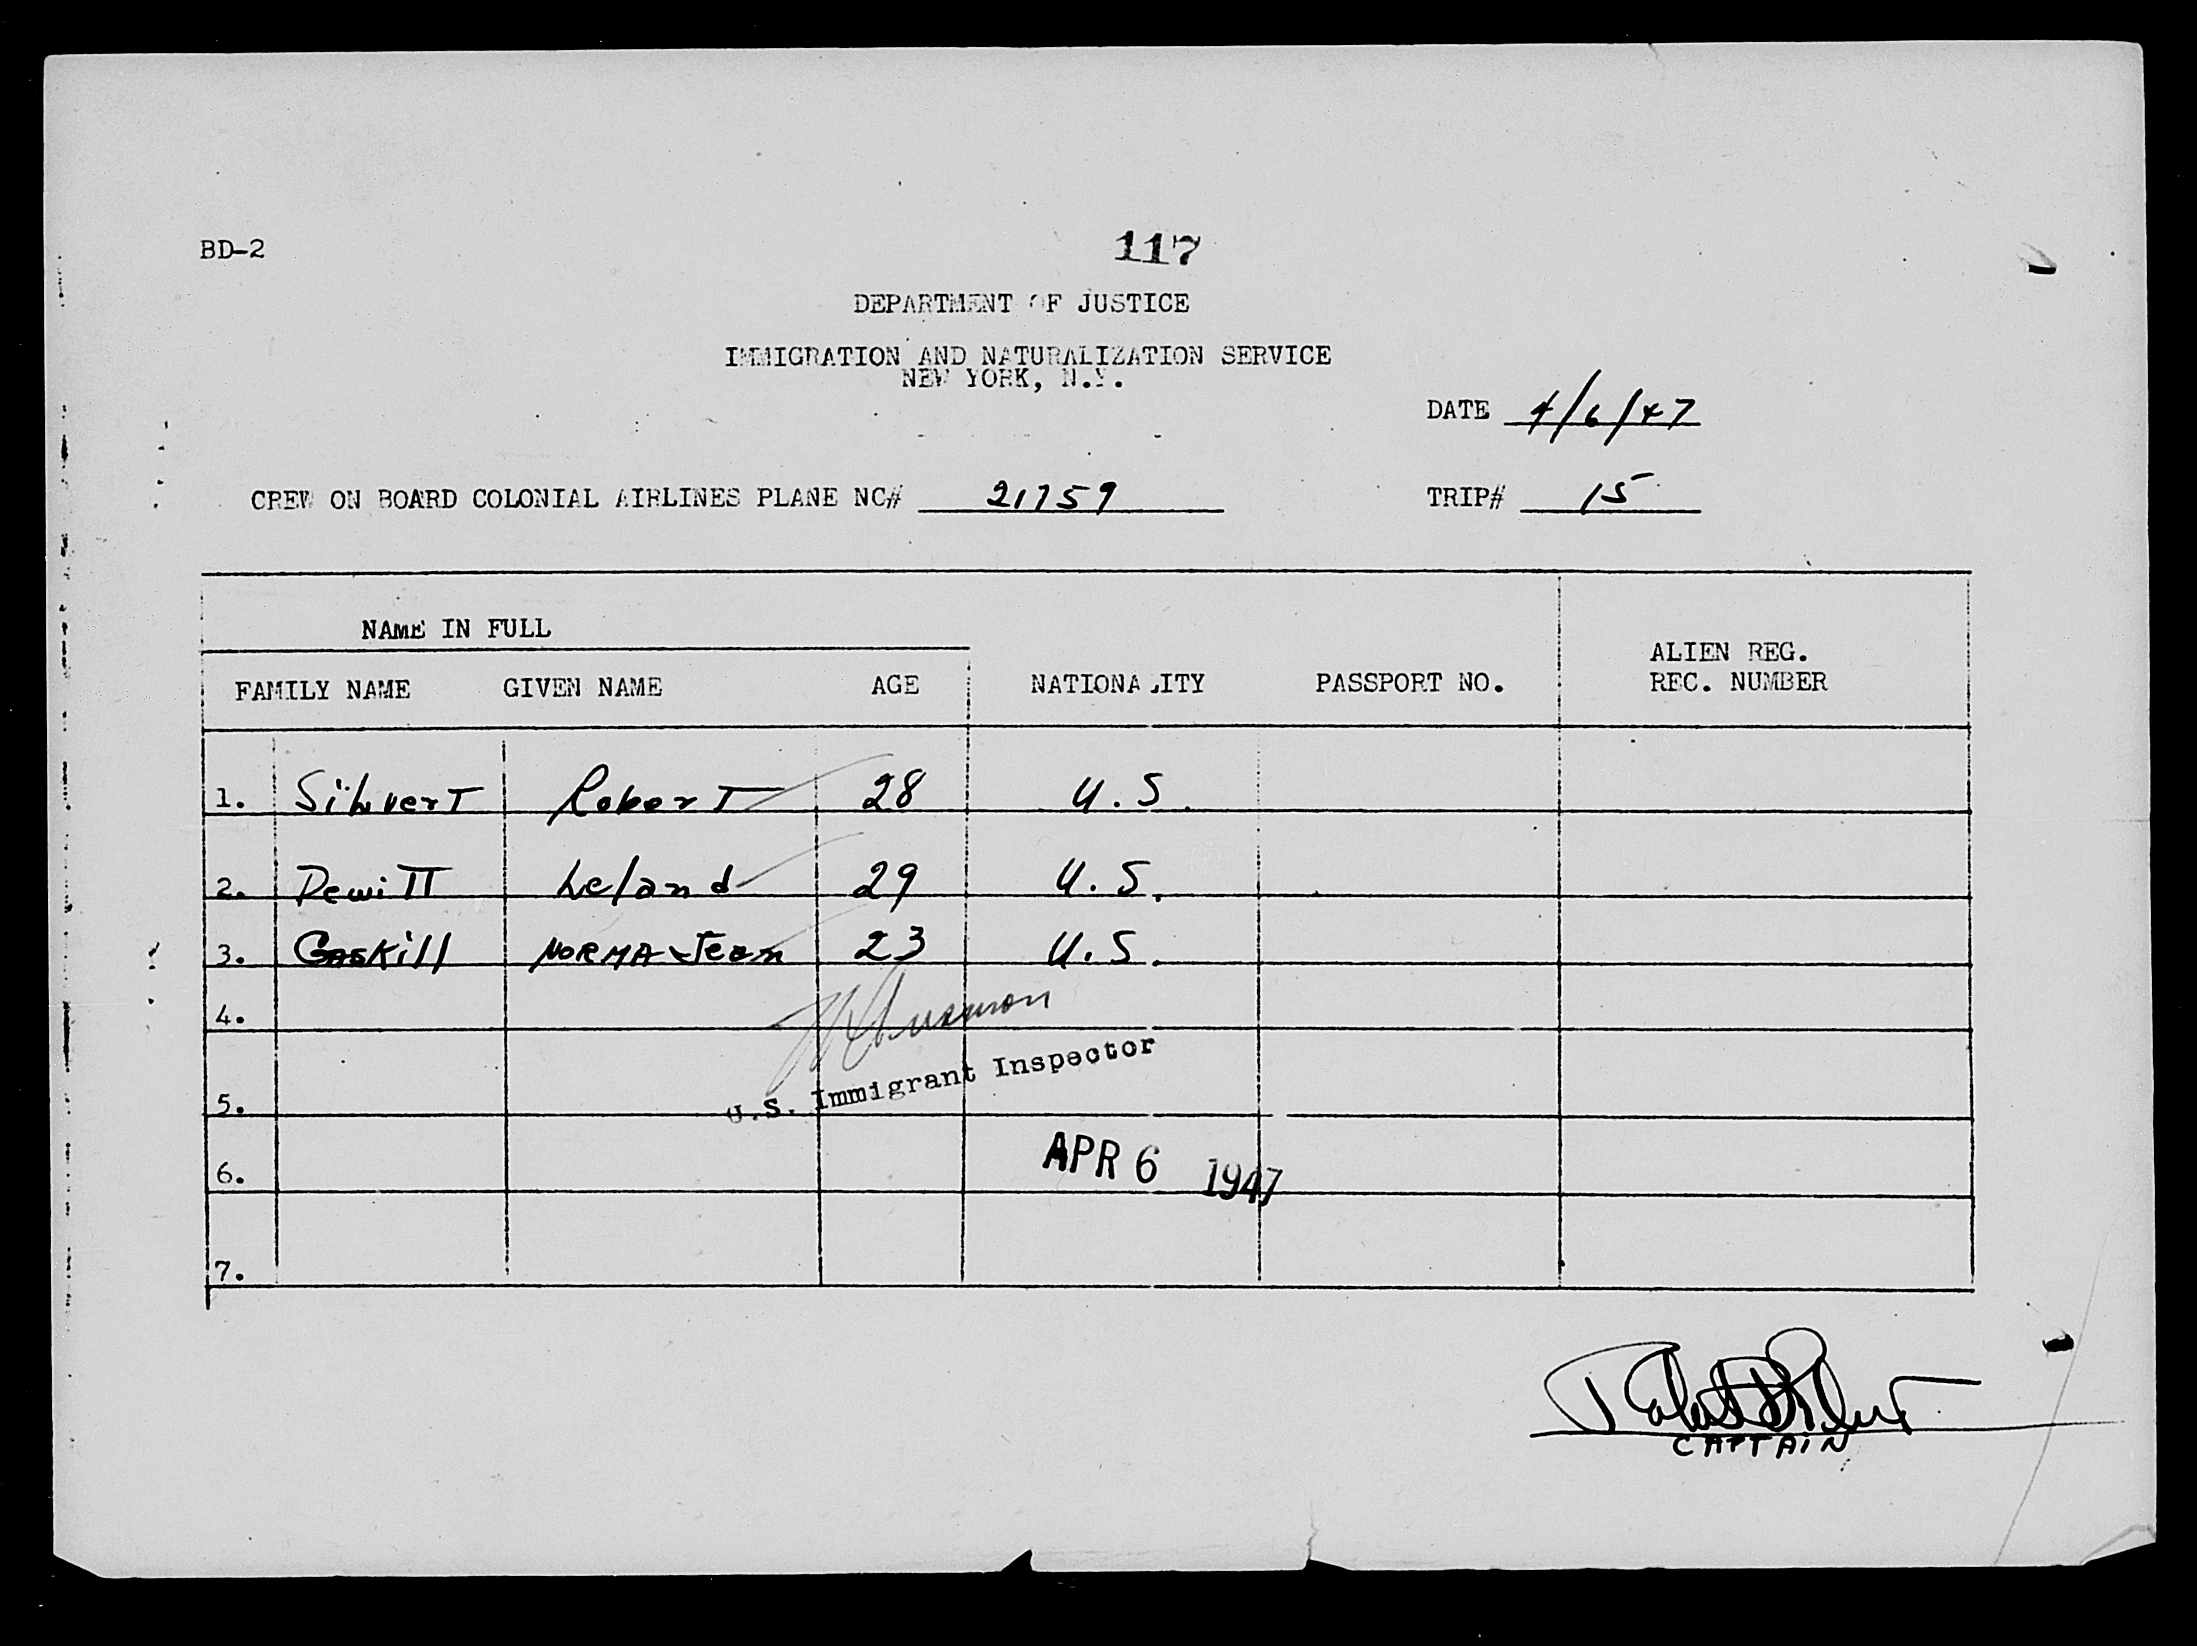 BD-2
117
DEPARTMENT OF JUSTICE
IMMIGRATION AND NATURALIZATION SERVICE
NEW YORK, N.Y.
DATE 4/6/47
CREW ON BOARD COLONIAL AIRLINES PLANE NC# 21759
TRIP# 15
NAME IN FULL
FAMILY NAME GIVEN NAME AGE NATIONALITY PASSPORT NO. ALIEN REG. REC. NUMBER
1. Robert 28 U.S.
2. Dewitt Leland 29 U.S.
3. Gaskill NORMA Jean 23 U.S.
4.
U.S. Immigrant Inspector
5.
APR 6 1947
6.
7.
CAPTAIN